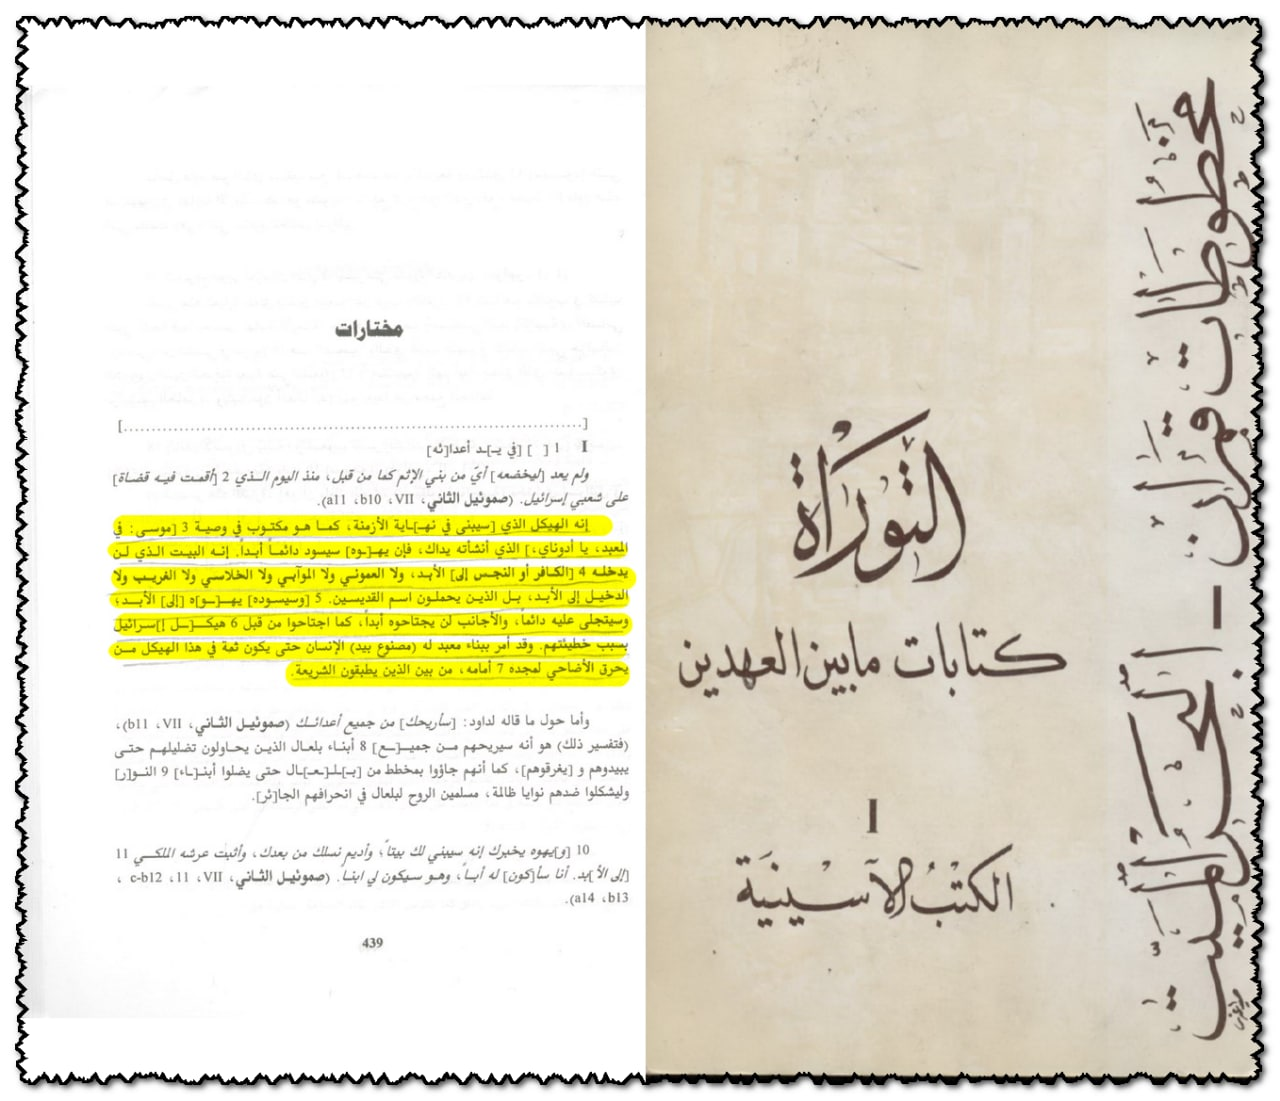 مختارات
[..........................................................................]
I 1 [ ] [في يـ]ـد أعدا[ئه]
ولم يعد [ليخضعه] أيّ من بني الإثم كما من قبل، منذ اليوم الـذي 2 [أقمت فيـه قضـاة]
على شعبي إسرائيل. (صموئيل الثاني، VII، a11 ،b10).
إنه الهيكل الذي [سيبنى في نهـ]ـاية الأزمنة، كمـا هـو مكتـوب في وصيـة 3 [موسى: في
المعبد، يا أدوناي،] الذي أنشأته يداك، فإن يهـ[ـوه] سيسود دائمـاً أبـداً. إنـه البيـت الـذي لـن
يدخلـه 4 [الكـافر أو النجـس إلى] الأبـد، ولا العمونـي ولا الموآبـي ولا الخلاسـي ولا الغريـب ولا
الدخيـل إلى الأبـد، بـل الذيـن يحملـون اسـم القديسـين. 5 [وسيسوده] يهـ[ـو]ه [إلى] الأبـد؛
وسيتجلى عليه دائماً، والأجانب لن يجتاحوه أبداً، كما اجتاحوا من قبل 6 هيكـ[ـل إ]سـرائيل
بسبب خطيئتهم. وقد أمر ببناء معبد له (مصنوع بيد) الإنسان حتى يكون ثمة في هذا الهيكل مـن
يحرق الأضاحي لمجده 7 أمامه، من بين الذين يطبقون الشريعة.
وأما حول ما قاله لداود: [سأريحك] من جميع أعدائـك (صموئيل الثـاني، VII، b11)،
(فتفسير ذلك) هو أنه سيريحهم مـن جميـ[ـع] 8 أبنـاء بلعـال الذيـن يحـاولون تضليلهـم حتـى
يبيدوهم و [يغرقوهم]، كما أنهم جاؤوا بمخطط من [بـ]ـلـ[ـعـ]ـال حتى يضلوا أبنـ[ـاء] 9 النـو[ر]
وليشكلوا ضدهم نوايا ظالمة، مسلمين الروح لبلعال في انحرافهم الجا[ئر].
10 [و]يهوه يخبرك إنه سيبني لك بيتاً؛ وأديم نسلك من بعدك، وأثبت عرشه الملكـي 11
[إلى الأ]بد. أنا سأ[كون] له أبـاً، وهـو سيكون لي ابنـا. (صموئيل الثـاني، VII، 11، c-b12 ،
a14 ،b13).
439
التوراة
كتابات مابين العهدين
I
الكتب الآسينية
مخطوطات قمران - البحر الميت